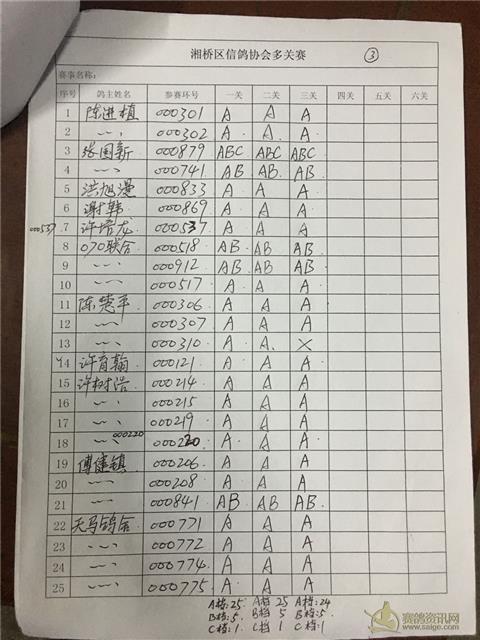 湘桥区信鸽协会多关赛 ③
赛事名称:
序号 鸽主姓名 参赛环号 一关 二关 三关 四关 五关 六关
1 陈进植 000301 A A A
2 〃 000302 A A A
3 张国新 000879 ABC ABC ABC
4 〃 000741 AB AB AB
5 洪旭漫 000833 A A A
6 谢韩 000869 A A A
000537 7 许培龙 000537 A A A
8 070联合 000518 AB AB AB
9 〃 000912 AB AB AB
10 〃 000517 A A A
11 陈楚平 000306 A A A
12 〃 000307 A A A
13 〃 000310 A A X
14 许育翰 000121 A A A
15 许树浩 000214 A A A
16 〃 000215 A A A
17 〃 000219 A A A
18 〃 000220 000220 A A A
19 傅健镇 000206 A A A
20 〃 000208 A A A
21 〃 000841 AB AB AB
22 天马鸽舍 000771 A A A
23 〃 000772 A A A
24 〃 000774 A A A
25 〃 000775 A A A
A档:25 A档 25 A档:24
B档:5 B档 5 B档:5
C档:1 C档 1 C档:1
赛鸽资讯网
www.saige.com